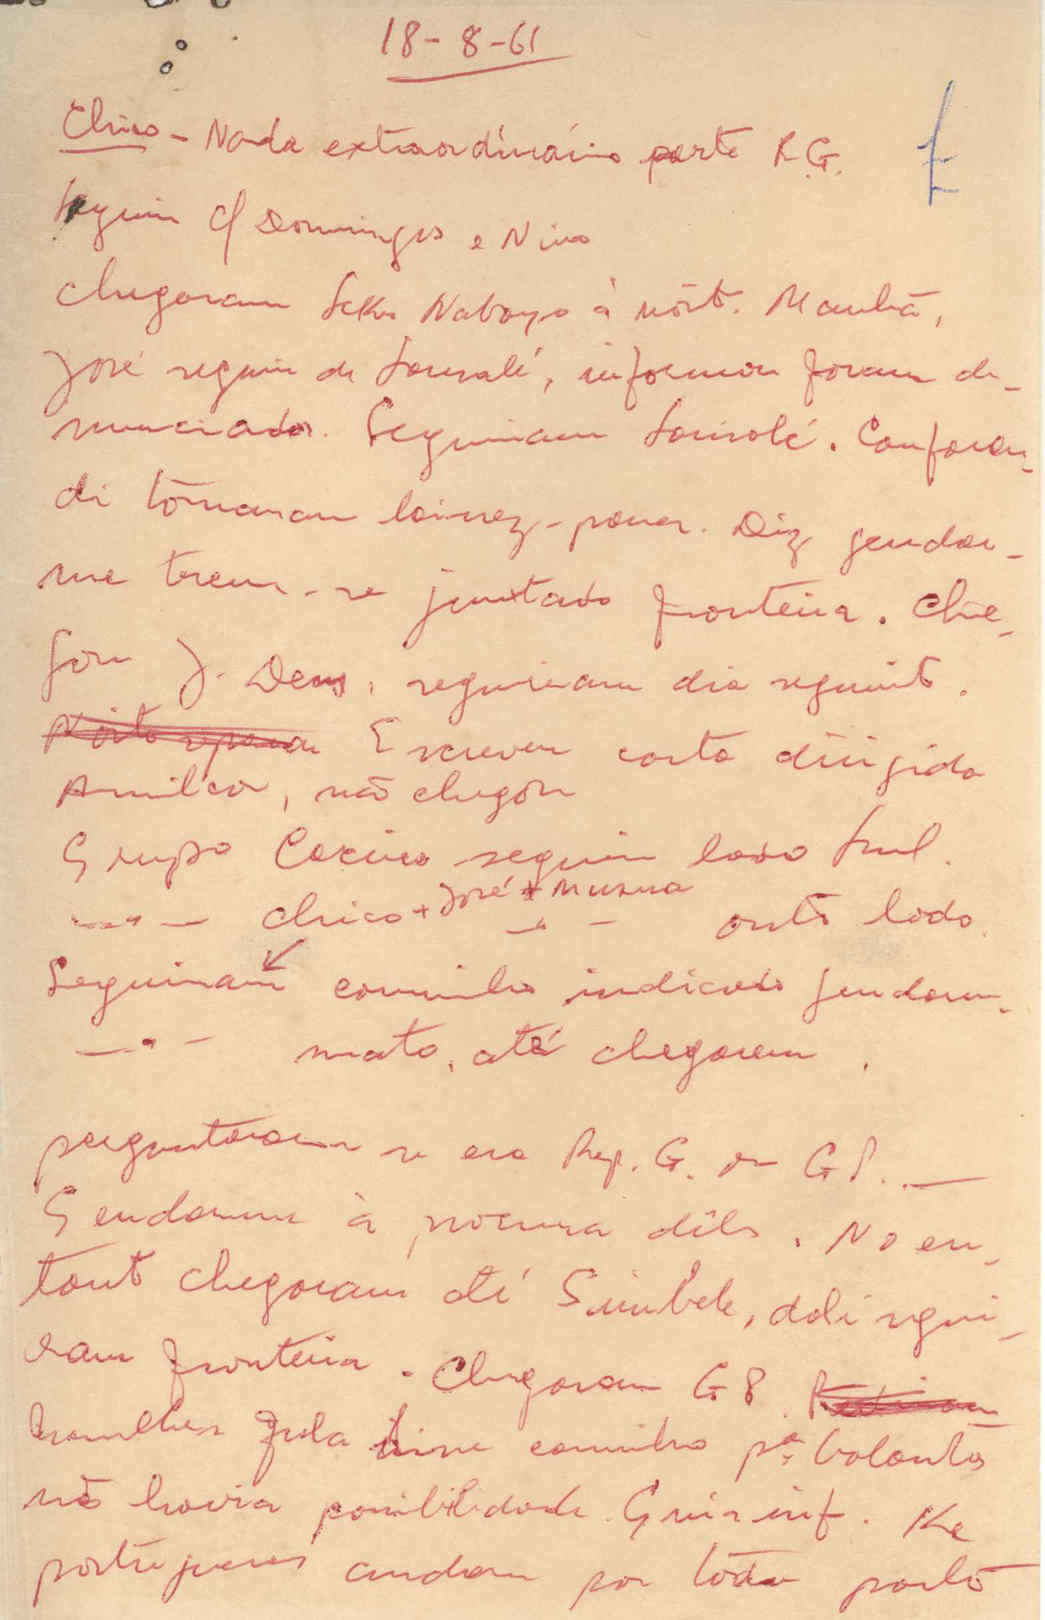 18-8-61
Chico - Nada extraordinário parte R.G.
Seguiu c/ Domingos e Nino
chegaram Seku Nabaya à nôite. Manhã,
José seguiu de Sansalé, informou foram de-
nunciados. Seguiram Sansalé. Conforan-
di tomaram laissez-passer. Diz gendar-
me terem-se juntado fronteira. Che-
gou J. Deus, seguiram dia seguinte.
Escreveu carta dirigida
Amilcar, não chegou
Grupo seguiu lado Sul.
—"— Chico + José + Mussa —"— outro lado.
Seguiram caminho indicado gendarm.
—"— mato, até chegarem,
perguntaram se era Rep. G. ou GP. —
Gendarme à procura dêles. No en-
tanto chegaram até Simbeli, dali segui-
ram fronteira. Chegaram GP.
mulher fula disse caminho pª Balantas
não havia possibilidade. Guia inf. Ke
portugueses andam por tôda parte